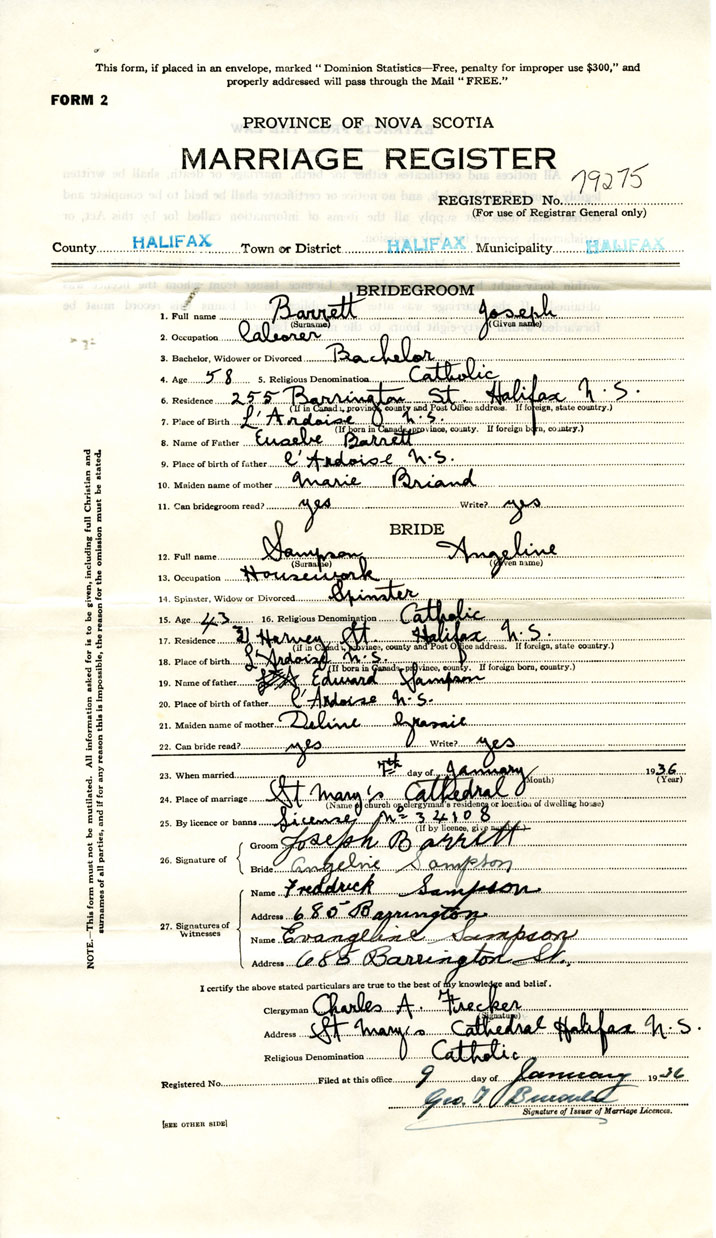 This form, if placed in an envelope, marked "Dominion Statistics—Free, penalty for improper use $300," and
properly addressed will pass through the Mail "FREE."
FORM 2
PROVINCE OF NOVA SCOTIA
MARRIAGE REGISTER
REGISTERED No. 79275
(For use of Registrar General only)
County HALIFAX Town or District HALIFAX Municipality HALIFAX
BRIDEGROOM
1. Full name Barrett Joseph
(Surname) (Given name)
2. Occupation
3. Bachelor, Widower or Divorced Bachelor
4. Age 58 5. Religious Denomination Catholic
6. Residence 255 Barrington St. Halifax N.S.
(If in Canada, province, county and Post Office address. If foreign, state country.)
7. Place of Birth L'Ardoise N.S.
(If born in Canada, province, county. If foreign born, country.)
8. Name of Father Eusebe Barrett
9. Place of birth of father L'Ardoise N.S.
10. Maiden name of mother Marie Briand
11. Can bridegroom read? yes Write? yes
BRIDE
12. Full name Sampson Angeline
(Surname) (Given name)
13. Occupation Housework
14. Spinster, Widow or Divorced Spinster
15. Age 43 16. Religious Denomination Catholic
17. Residence 21 Harvey St. Halifax N.S.
(if in Canada, province, county and Post Office address. If foreign, state country.)
18. Place of birth L'Ardoise N.S.
(If born in Canada, province, county. If foreign born, country.)
19. Name of father Edward Sampson
20. Place of birth of father L'Ardoise N.S.
21. Maiden name of mother Deline
22. Can bride read? yes Write? yes
23. When married 7th day of January 1936
(Month) (Year)
24. Place of marriage St Mary's Cathedral
(Name of church or clergyman's residence or location of dwelling house)
25. By licence or banns License No 34108
(If by licence, give number)
26. Signature of
Groom Joseph Barrett
Bride Angeline Sampson
27. Signatures of Witnesses
Name Freddrick Sampson
Address 685 Barrington
Name Evangeline Sampson
Address 685 Barrington St.
I certify the above stated particulars are true to the best of my knowledge and belief.
Clergyman Charles A. Frecker
(Signature)
Address St Mary's Cathedral Halifax N.S.
Religious Denomination Catholic
Registered No. Filed at this office 9 day of January 1936
Geo. T.
Signature of Issuer of Marriage Licences.
[SEE OTHER SIDE]
NOTE.—This form must not be mutilated. All information asked for is to be given, including full Christian and
surnames of all parties, and if for any reason this is impossible, the reason for the omission must be stated.